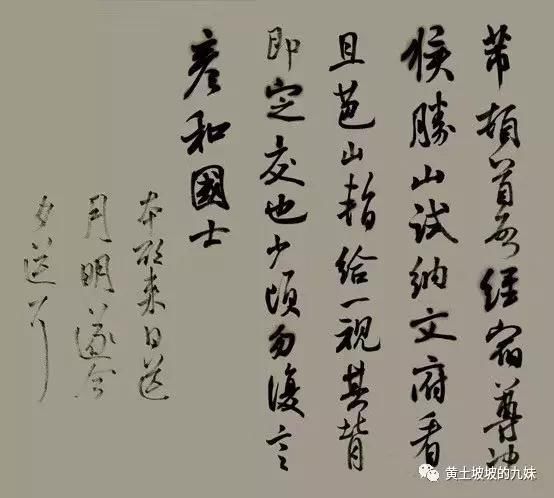 芾頓首啓經宿尊沖
候勝山試納文府看
且芭山指給一視其背
即定交也少頃勿復言
彥和國士
本欲來日送
月明遂今
夕送耳
黄土坡坡的九妹